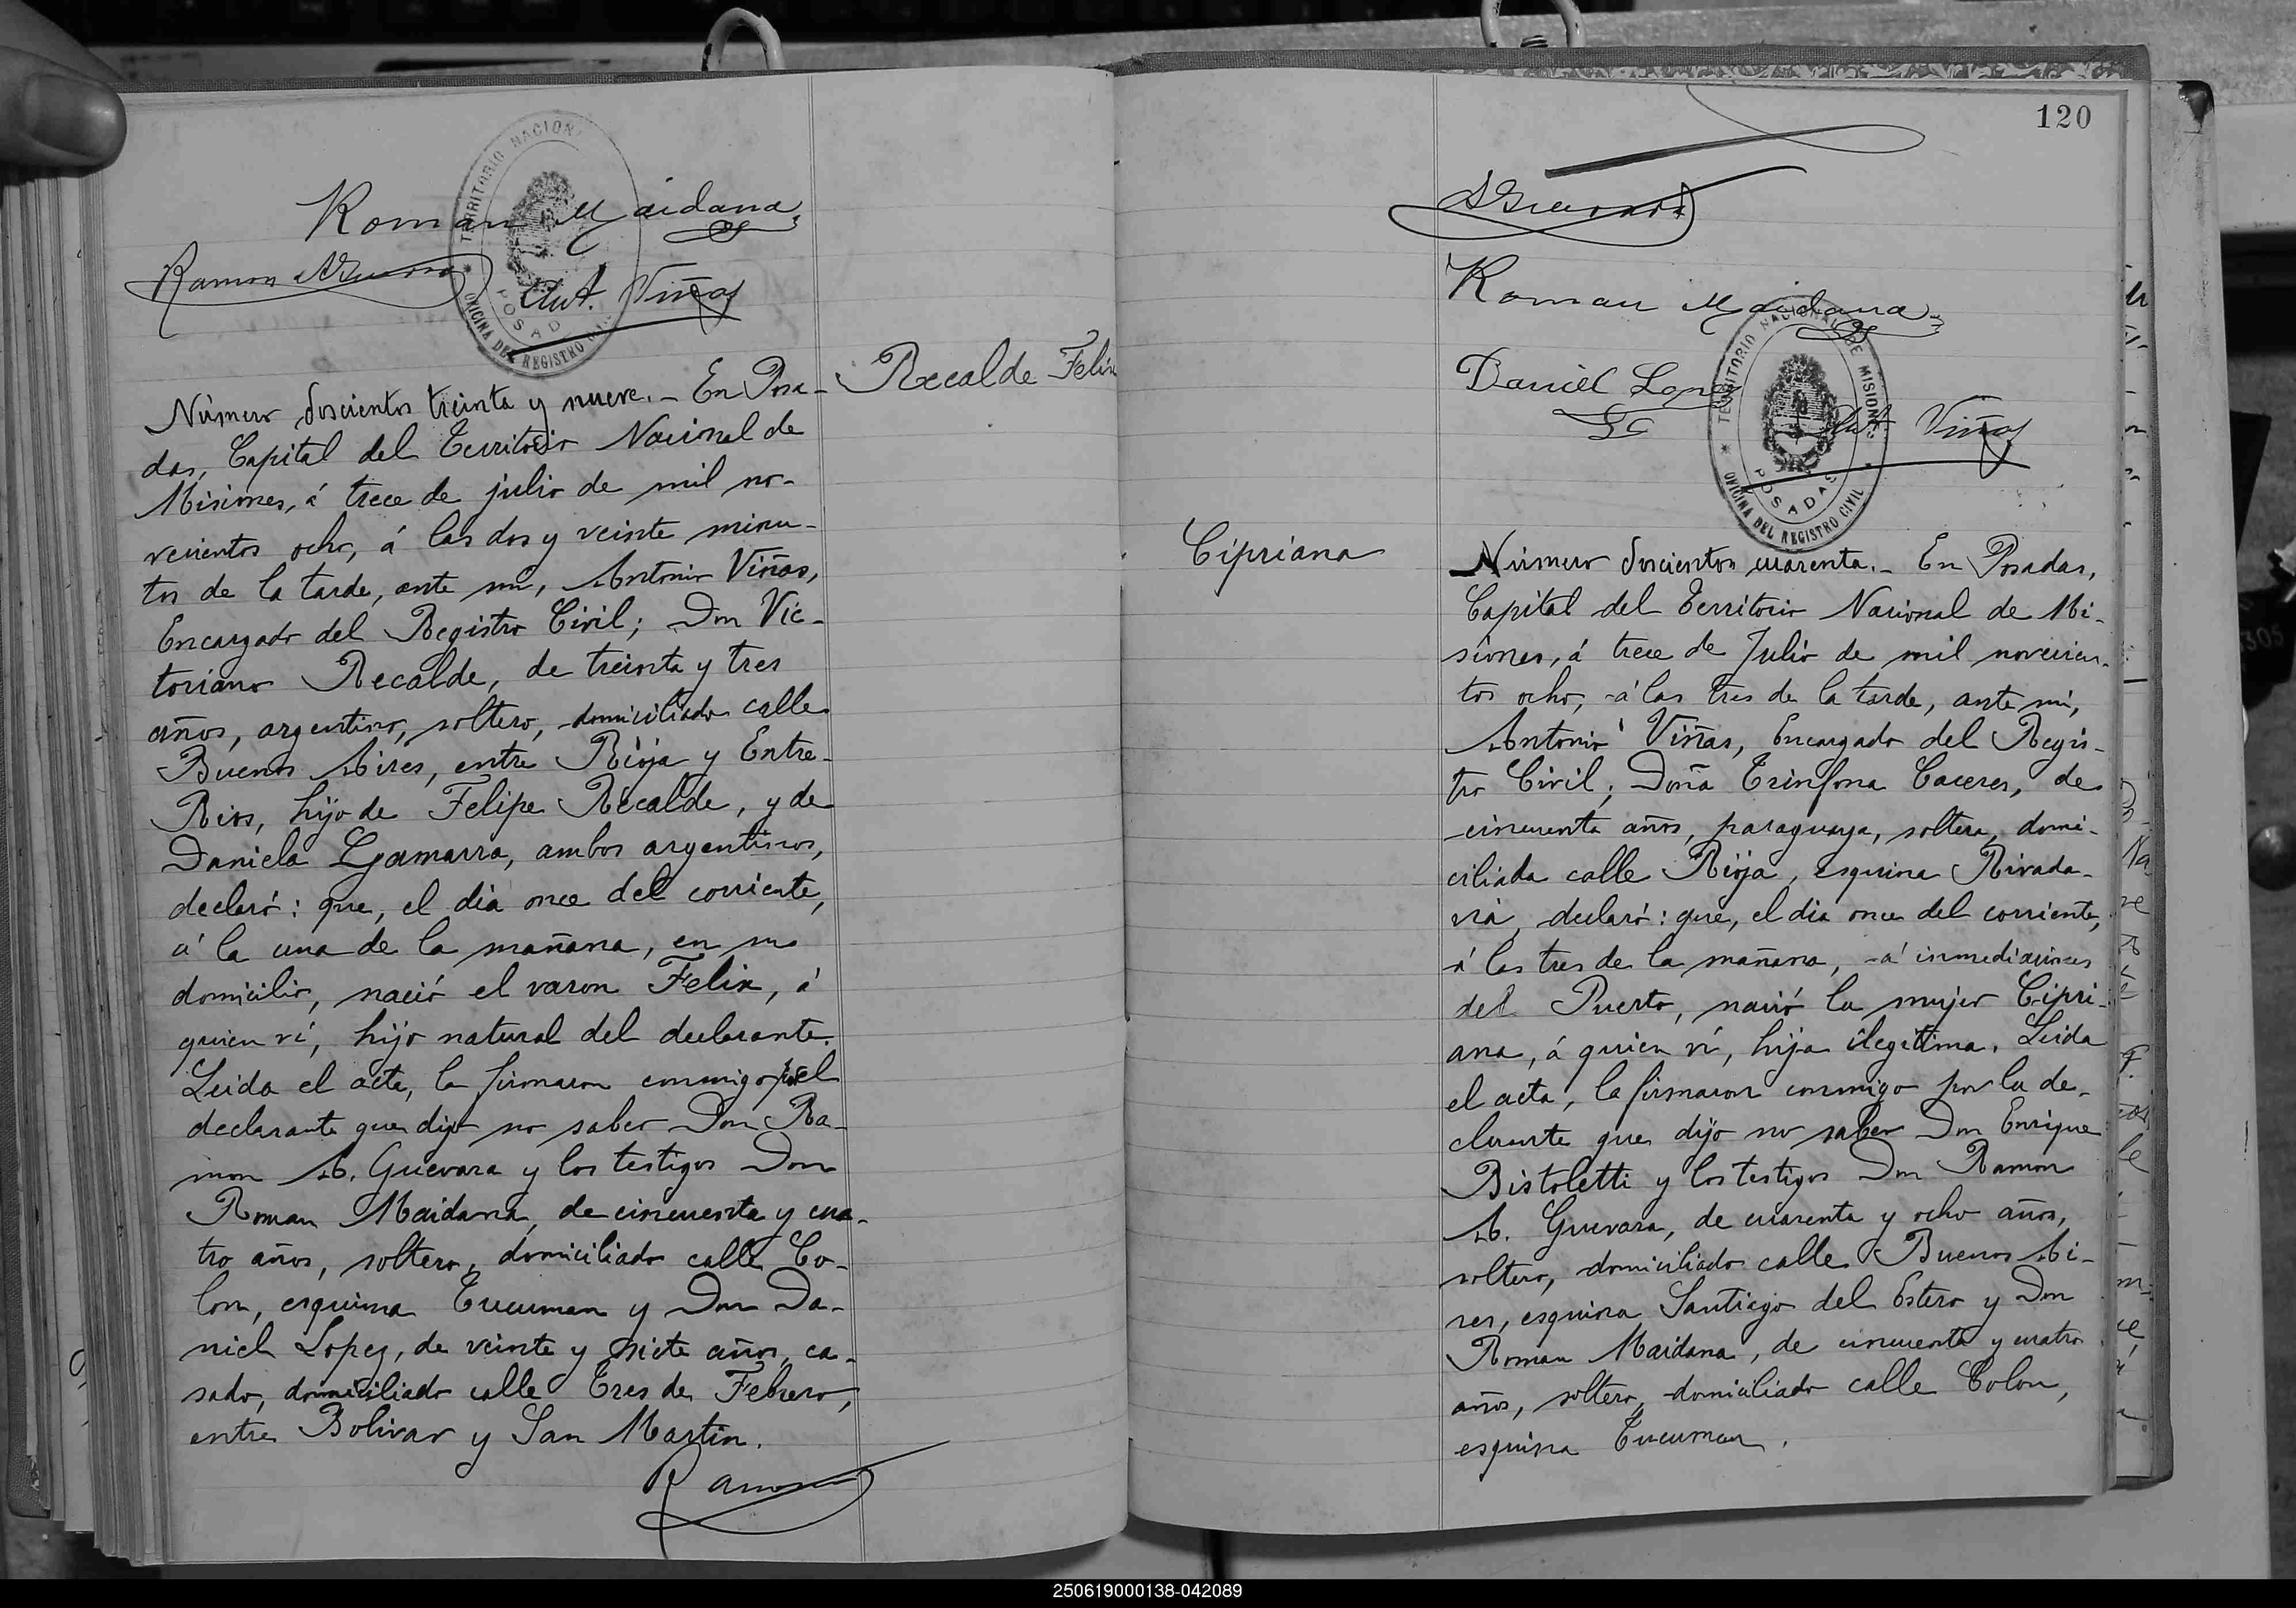 Roman Maidana
Ramon A Guevara
Ant. Viñas
TERRITORIO NACION
POSAD
OFICINA DEL REGISTRO
Recalde Felix
Número doscientos treinta y nueve.- En Posa-
das, Capital del Territorio Nacional de
Misiones, á trece de julio de mil no-
vecientos ocho, á las dos y veinte minu-
tos de la tarde, ante mí, Antonio Viñas,
Encargado del Registro Civil; Don Vic-
toriano Recalde, de treinta y tres
años, argentino, soltero, domiciliado calle
Buenos Aires, entre Rioja y Entre-
Rios, hijo de Felipe Recalde, y de
Daniela Gamarra, ambos argentinos,
declaró: que, el dia once del corriente,
á la una de la mañana, en su
domicilio, nació el varon Felix, á
quien ví, hijo natural del declarante.
Leida el acta, la firmaron conmigo por el
declarante que dijo no saber Don Ra-
mon A. Guevara y los testigos Don
Roman Maidana, de cincuenta y cua-
tro años, soltero, domiciliado calle Co-
lon, esquina Tucuman y Don Da-
niel Lopez, de veinte y siete años, ca-
sado, domiciliado calle Tres de Febrero,
entre Bolivar y San Martin.
Ramon
120
AGuevara
Roman Maidana
Daniel Lopez
Ant Viñas
TERRITORIO NACIONAL DE MISIONES
POSADAS
OFICINA DEL REGISTRO CIVIL
Cipriana
Número doscientos cuarenta.- En Posadas,
Capital del Territorio Nacional de Mi-
siones, á trece de Julio de mil novecien-
tos ocho, á las tres de la tarde, ante mí,
Antonio Viñas, Encargado del Regis-
tro Civil; Doña Trinfona Caceres, de
cincuenta años, paraguaya, soltera, domi-
ciliada calle Rioja, esquina Rivada-
via, declaró: que, el dia once del corriente,
á las tres de la mañana, á inmediaciones
del Puerto, nació la mujer Cipri-
ana, á quien ví, hija ilegitima. Leida
el acta, la firmaron conmigo por la de-
clarante que dijo no saber Don Enrique
Bistoletti y los testigos Don Ramon
A. Guevara, de cuarenta y ocho años,
soltero, domiciliado calle Buenos Ai-
res, esquina Santiago del Estero y Don
Roman Maidana, de cincuenta y cuatro
años, soltero, domiciliado calle Colon,
esquina Tucuman.
250619000138-042089